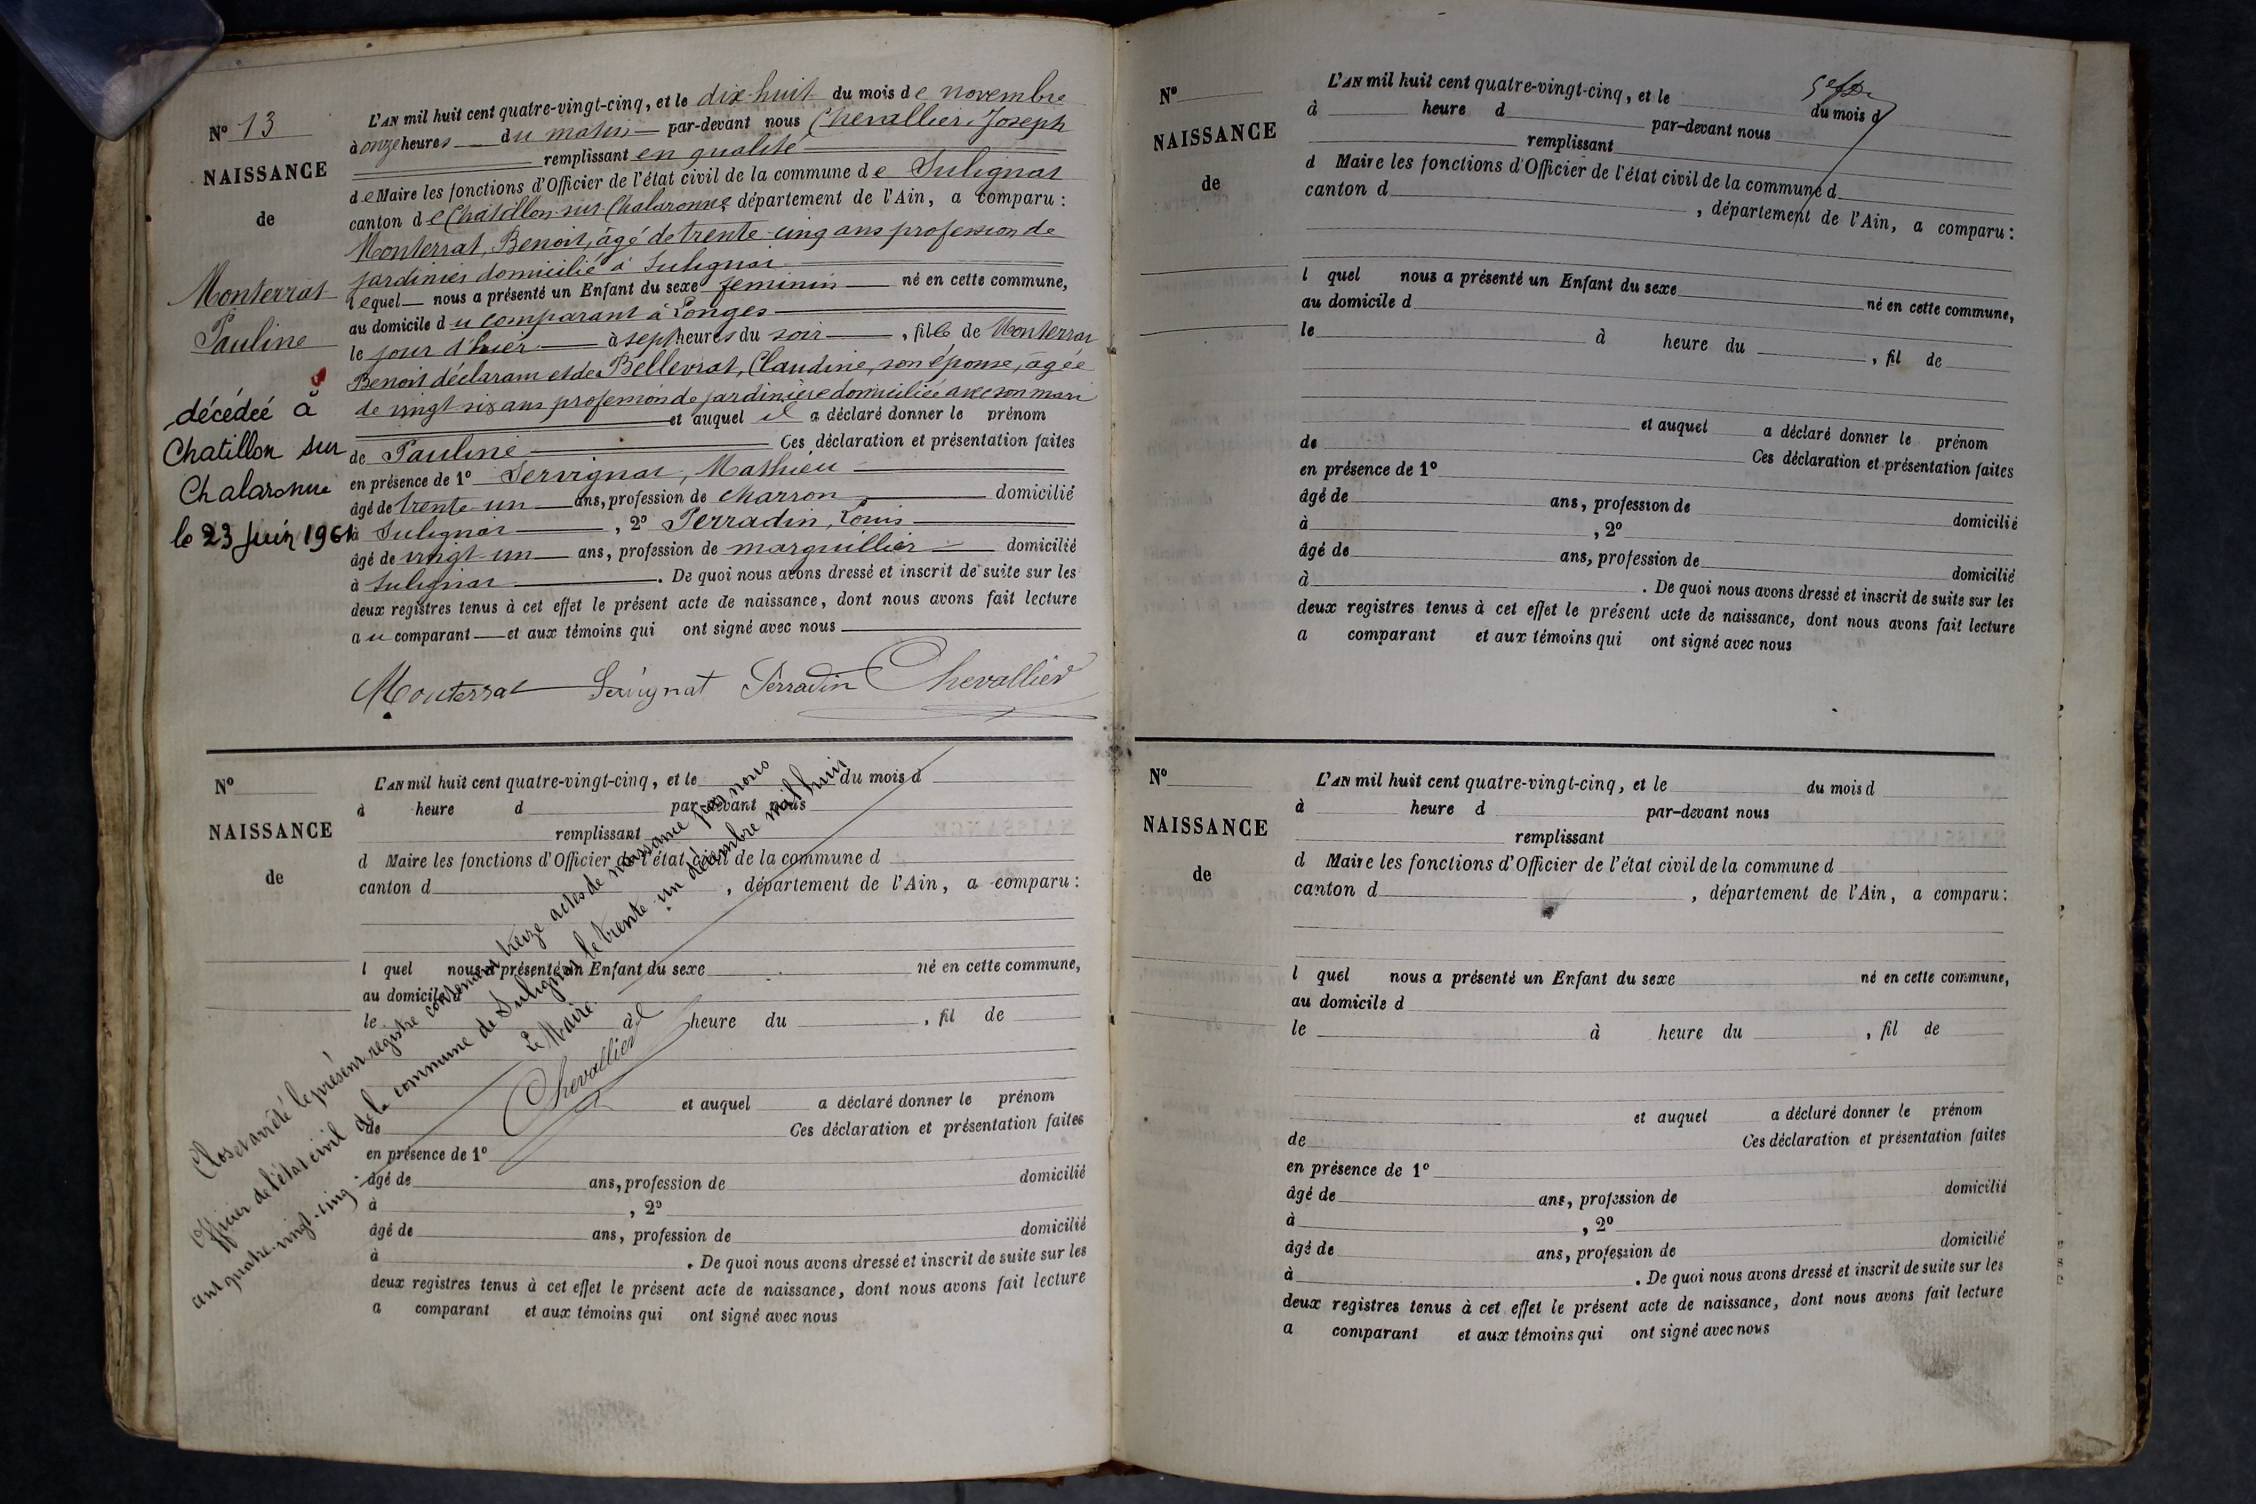 N° 13
NAISSANCE
de
Monterrat
Pauline
décédée à
Chatillon sur
Chalaronne
le 23 Juin 1961
L'AN mil huit cent quatre-vingt-cinq, et le dix-huit du mois de novembre
à onze heures du matin par-devant nous Chevallier, Joseph
remplissant en qualité
de Maire les fonctions d'Officier de l'état civil de la commune de Sulignat
canton de Châtillon-sur-Chalaronne, département de l'Ain, a comparu :
Monterrat, Benoit, âgé de trente-cinq ans profession de
jardinier domicilié à Sulignat
Lequel nous a présenté un Enfant du sexe féminin né en cette commune,
au domicile du comparant à Longes
le jour d'hier à sept heures du soir, fille de Monterrat
Benoit déclarant et de Bellevrat, Claudine, son épouse, âgée
de vingt-six ans profession de jardinière domiciliée avec son mari
et auquel il a déclaré donner le prénom
de Pauline Ces déclaration et présentation faites
en présence de 1° Servignat, Mathieu
âgé de trente-un ans, profession de charron domicilié
à Sulignat, 2° Perradin, Louis
âgé de vingt-un ans, profession de marguillier domicilié
à Sulignat. De quoi nous avons dressé et inscrit de suite sur les
deux registres tenus à cet effet le présent acte de naissance, dont nous avons fait lecture
au comparant et aux témoins qui ont signé avec nous
Monterrat Servignat Perradin Chevallier
N°
NAISSANCE
de
L'AN mil huit cent quatre-vingt-cinq, et le du mois d
à heure d par-devant nous
remplissant
d Maire les fonctions d'Officier de l'état civil de la commune d
canton d , département de l'Ain, a comparu :
l quel nous a présenté un Enfant du sexe né en cette commune,
au domicile d
le à heure du , fil de
et auquel a déclaré donner le prénom
de Ces déclaration et présentation faites
en présence de 1°
âgé de ans, profession de domicilié
à , 2°
âgé de ans, profession de domicilié
à . De quoi nous avons dressé et inscrit de suite sur les
deux registres tenus à cet effet le présent acte de naissance, dont nous avons fait lecture
a comparant et aux témoins qui ont signé avec nous
Clos et arrêté le présent registre contenant treize actes de naissance par nous
Officier de l'état civil de la commune de Sulignat le trente-un décembre mil huit
cent quatre-vingt-cinq.
Le Maire
Chevallier
N°
NAISSANCE
de
L'AN mil huit cent quatre-vingt-cinq, et le du mois d
à heure d par-devant nous
remplissant
d Maire les fonctions d'Officier de l'état civil de la commune d
canton d , département de l'Ain, a comparu :
l quel nous a présenté un Enfant du sexe né en cette commune,
au domicile d
le à heure du , fil de
et auquel a déclaré donner le prénom
de Ces déclaration et présentation faites
en présence de 1°
âgé de ans, profession de domicilié
à , 2°
âgé de ans, profession de domicilié
à . De quoi nous avons dressé et inscrit de suite sur les
deux registres tenus à cet effet le présent acte de naissance, dont nous avons fait lecture
a comparant et aux témoins qui ont signé avec nous
N°
NAISSANCE
de
L'AN mil huit cent quatre-vingt-cinq, et le du mois d
à heure d par-devant nous
remplissant
d Maire les fonctions d'Officier de l'état civil de la commune d
canton d , département de l'Ain, a comparu :
l quel nous a présenté un Enfant du sexe né en cette commune,
au domicile d
le à heure du , fil de
et auquel a déclaré donner le prénom
de Ces déclaration et présentation faites
en présence de 1°
âgé de ans, profession de domicilié
à , 2°
âgé de ans, profession de domicilié
à . De quoi nous avons dressé et inscrit de suite sur les
deux registres tenus à cet effet le présent acte de naissance, dont nous avons fait lecture
a comparant et aux témoins qui ont signé avec nous